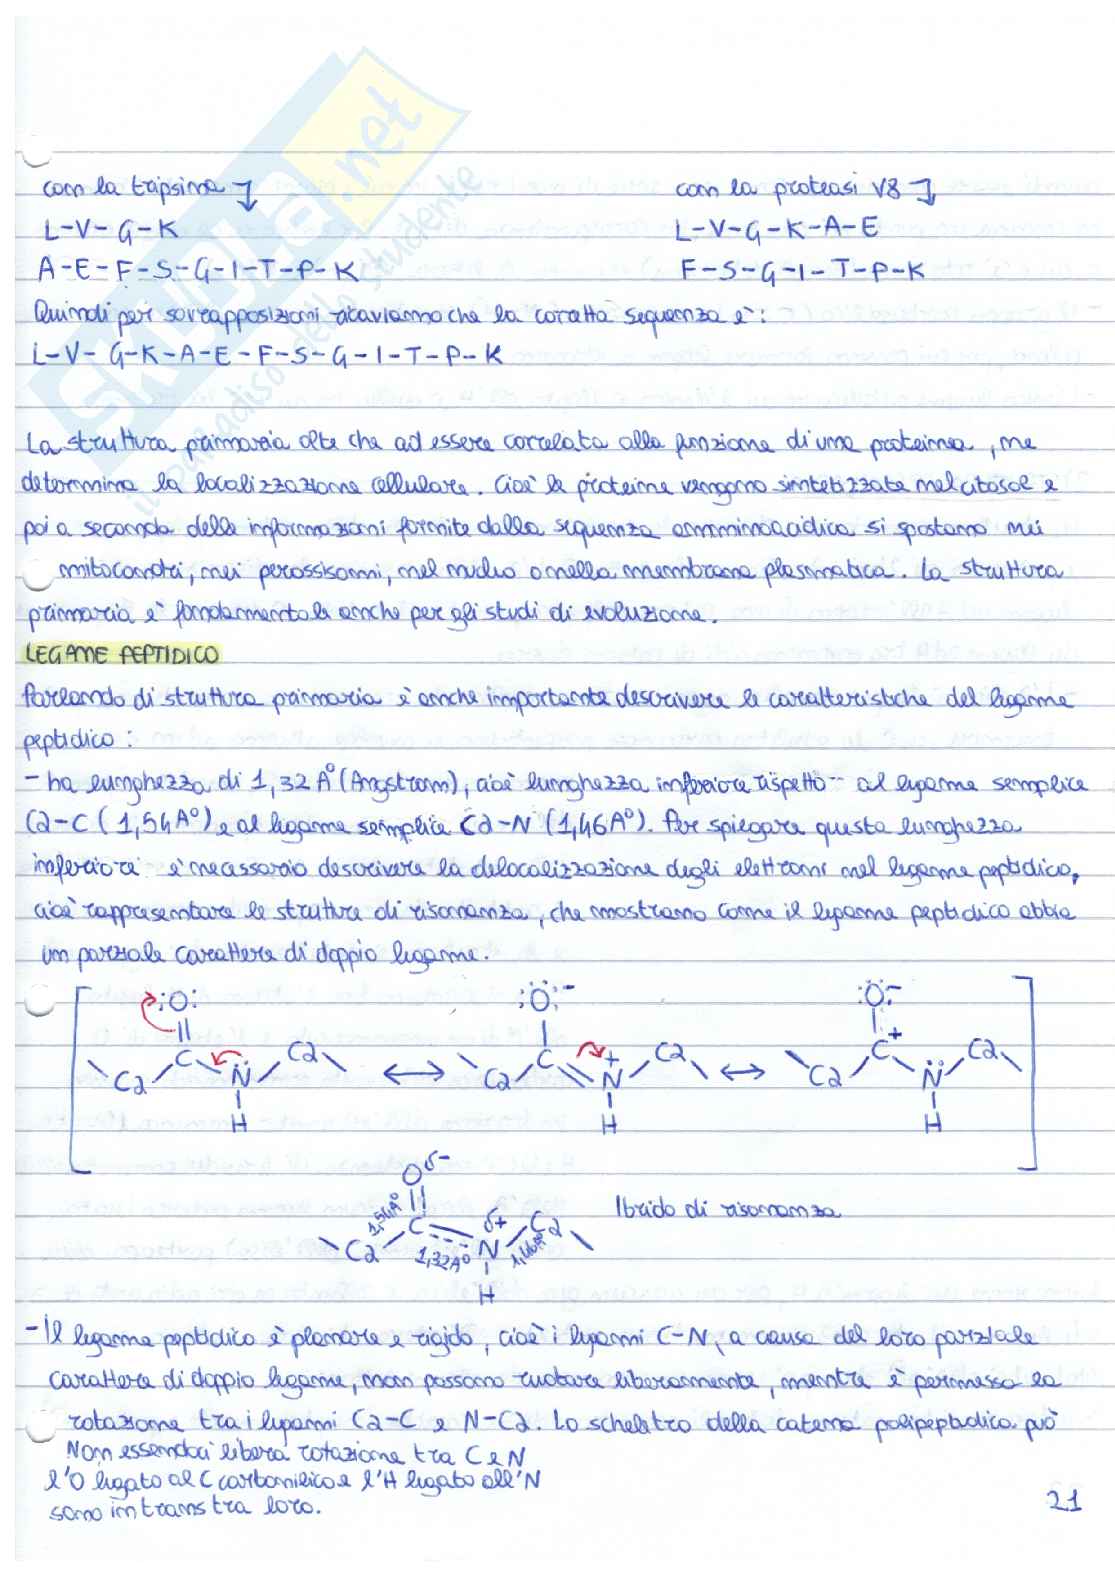 con la tripsina
con la proteasi V8
L-V-G-K
L-V-G-K-A-E
A-E-F-S-G-I-T-P-K
F-S-G-I-T-P-K
Quindi per sovrapposizioni ricaviamo che la corretta sequenza è:
L-V-G-K-A-E-F-S-G-I-T-P-K
La struttura primaria oltre che ad essere correlata alla funzione di una proteina, ne
determina la localizzazione cellulare. Cioè le proteine vengono sintetizzate nel citosol e
poi a seconda delle informazioni fornite dalla sequenza amminoacidica si spostano nei
mitocondri, nei perossisomi, nel nucleo o nella membrana plasmatica. La struttura
primaria è fondamentale anche per gli studi di evoluzione.
LEGAME PEPTIDICO
Parlando di struttura primaria è anche importante descrivere le caratteristiche del legame
peptidico:
- ha lunghezza di 1,32 A° (Angstrom), cioè lunghezza inferiore rispetto al legame semplice
Cα-C (1,54A°) e al legame semplice Cα-N (1,46A°). Per spiegare questa lunghezza
inferiore è necessario descrivere la delocalizzazione degli elettroni nel legame peptidico,
cioè rappresentare le strutture di risonanza, che mostrano come il legame peptidico abbia
un parziale carattere di doppio legame.
:O: :O:- :O:-
Cα C N Cα Cα C N+ Cα Cα C+ N Cα
H H H
Oδ-
1,54A° C δ+ Cα Ibrido di risonanza
Cα 1,32A° N 1,46A°
H
- Il legame peptidico è planare e rigido, cioè i legami C-N, a causa del loro parziale
carattere di doppio legame, non possono ruotare liberamente, mentre è permessa la
rotazione tra i legami Cα-C e N-Cα. Lo scheletro della catena polipeptidica può
Non essendoci libera rotazione tra C e N
l'O legato al C carbonilico e l'H legato all'N
sono in trans tra loro.
21
SKUOLA.net
il paradiso dello studente